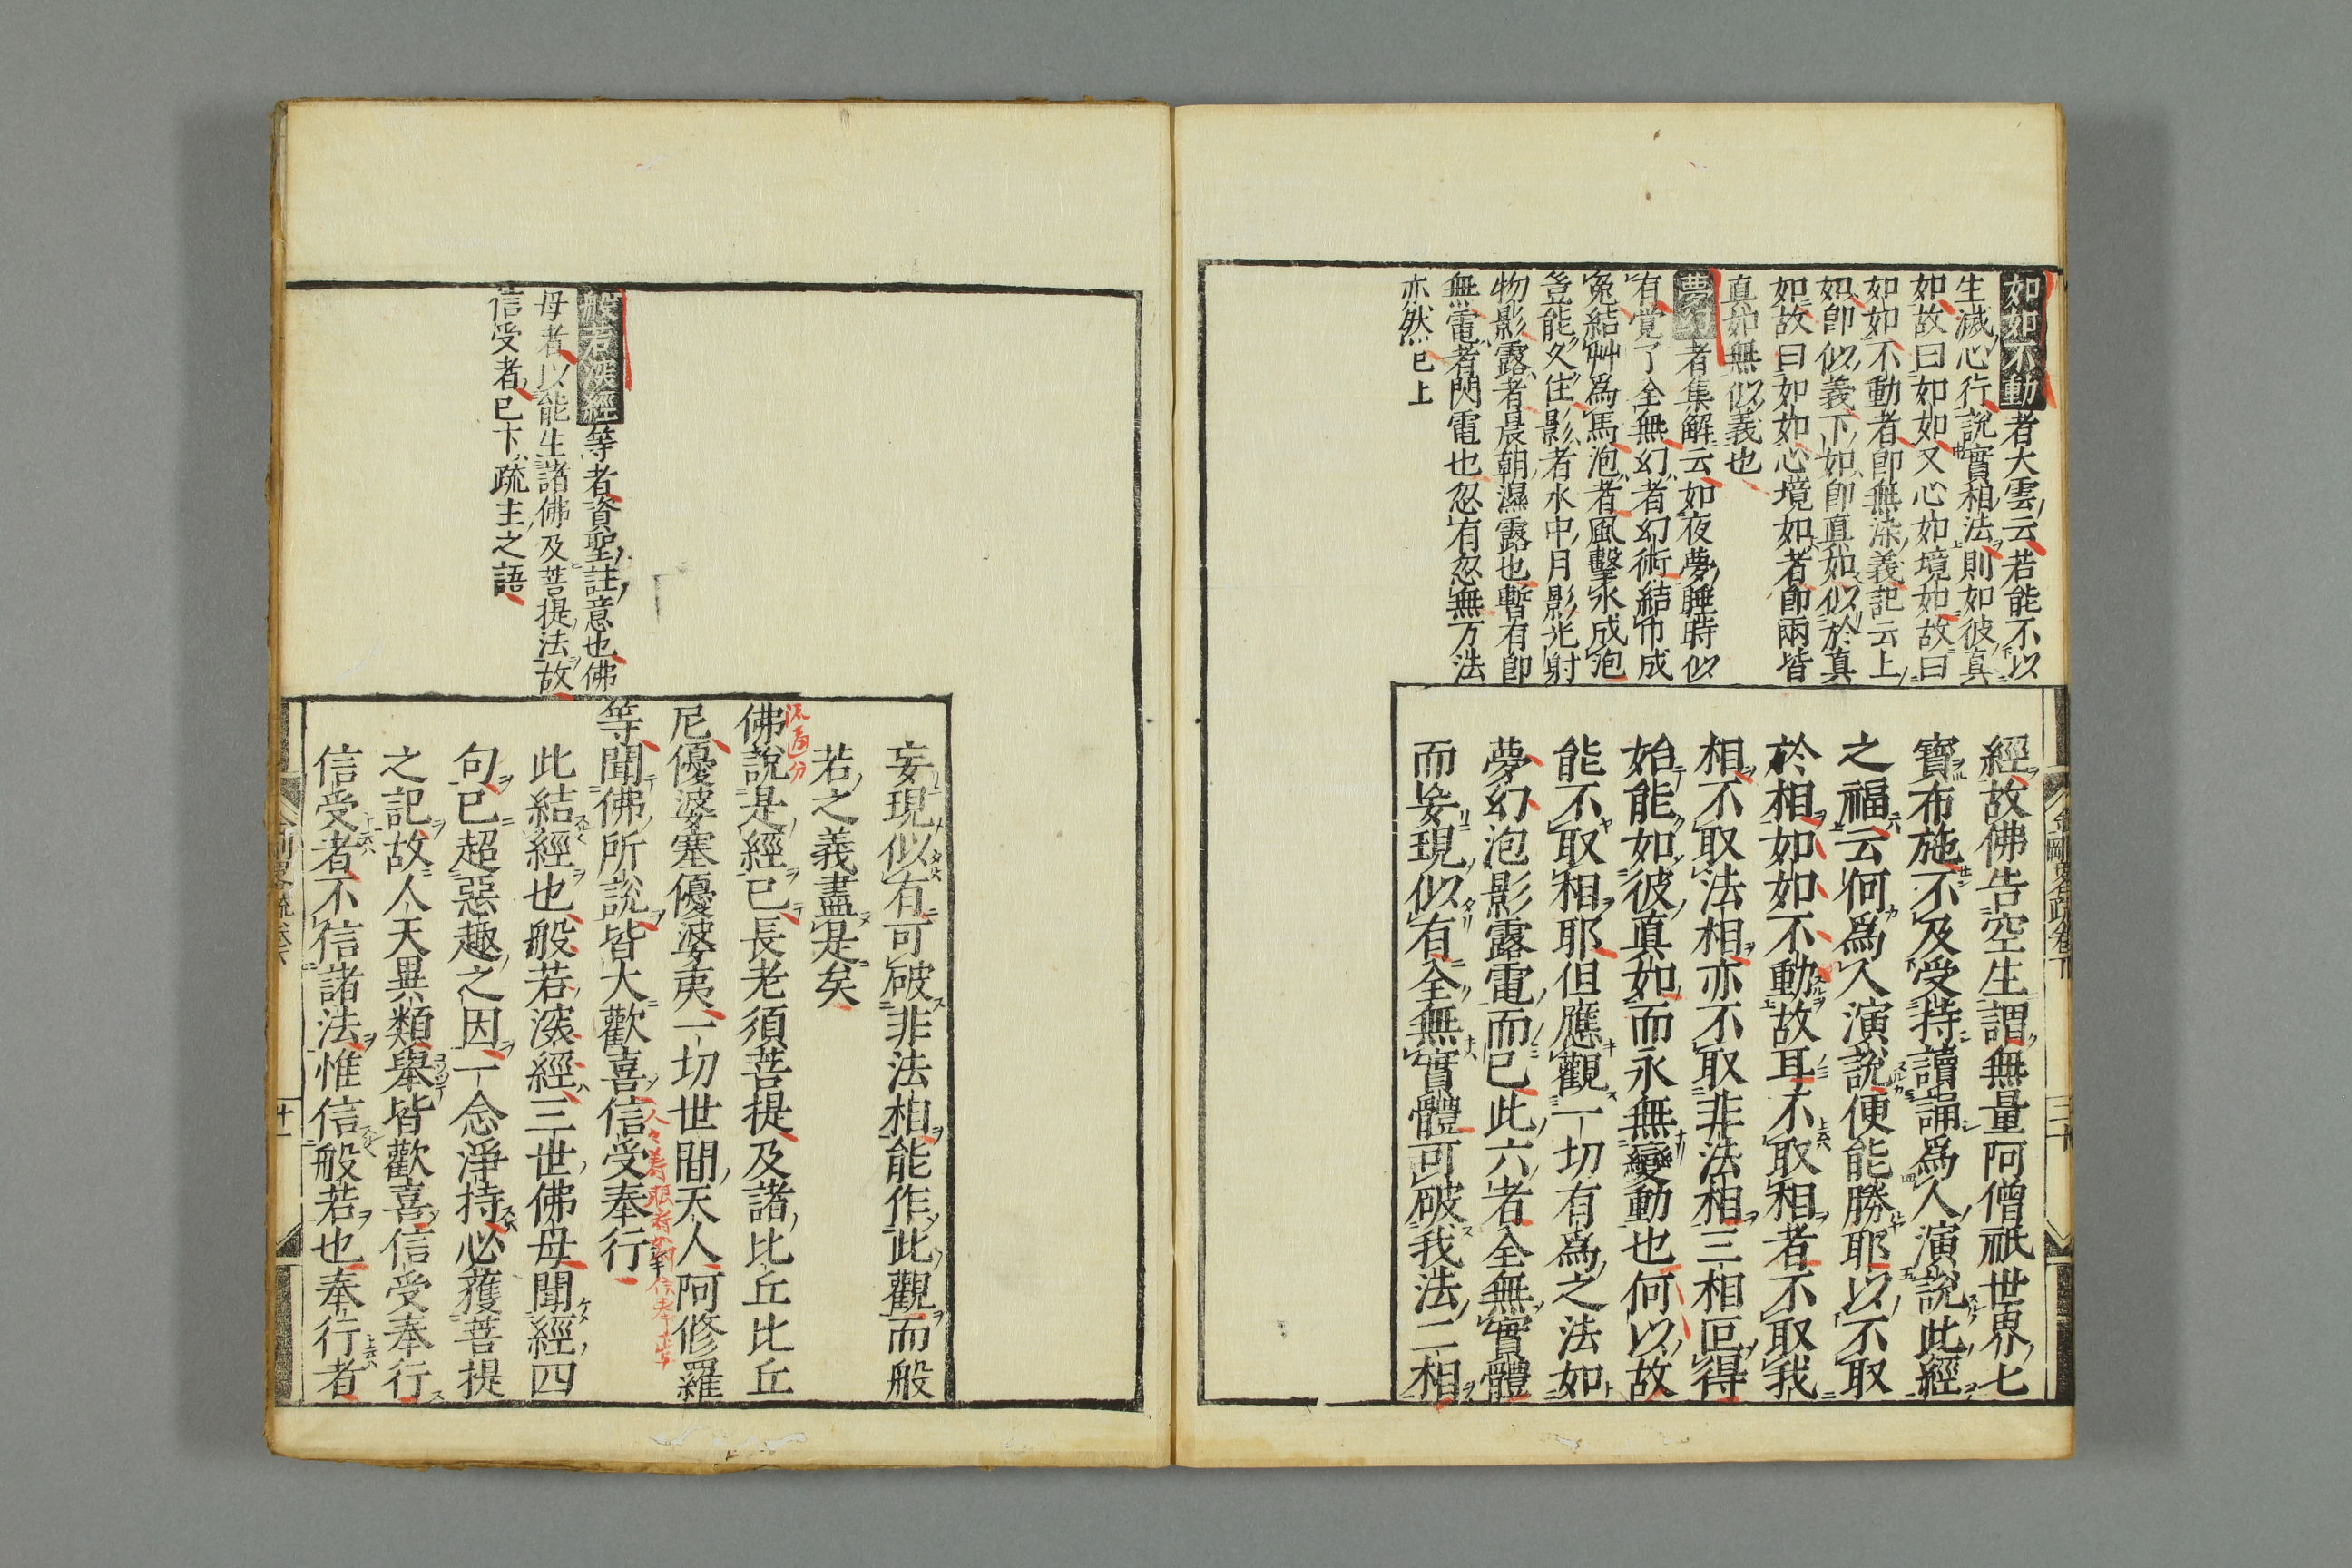 如如不動者大雲云若能不以
生滅心行說實相法則如彼真
如故曰如如又心如境如故曰
如如不動者即無染義記云上
如即似義下如即真如似於真
如故曰如如心境如者即兩皆
真如無似義也
夢幻者集解云如夜夢睡時似
有覚了全無幻者幻術結巾成
兔結艸爲馬泡者風擊水成泡
豈能久住影者水中月影光射
物影露者晨朝濕露也暫有即
無電者閃電也忽有忽無万法
亦然已上
經故佛告空生謂無量阿僧祇世界七
寶布施不及受持讀誦爲人演說此經
之福云何爲人演說便能勝耶以不取
於相如如不動故耳不取相者不取我
相不取法相亦不取非法相三相叵得
始能如彼真如而永無變動也何以故
能不取相耶但應觀一切有爲之法如
夢幻泡影露電而已此六者全無實體
而妄現似有全無實體可破我法二相
三十
般若湥經等者資聖註意也佛
母者以能生諸佛及菩提法故
信受者已下疏主之語
妄現似有可破非法相能作此觀而般
若之義盡是矣
流通分
佛說是經已長老須菩提及諸比丘比丘
尼優婆塞優婆夷一切世間天人阿修羅
等聞佛所說皆大歡喜信受奉行
此結經也般若湥經三世佛母聞經四
句已超惡趣之因一念淨持必獲菩提
之記故人天異類舉皆歡喜信受奉行
信受者不信諸法惟信般若也奉行者